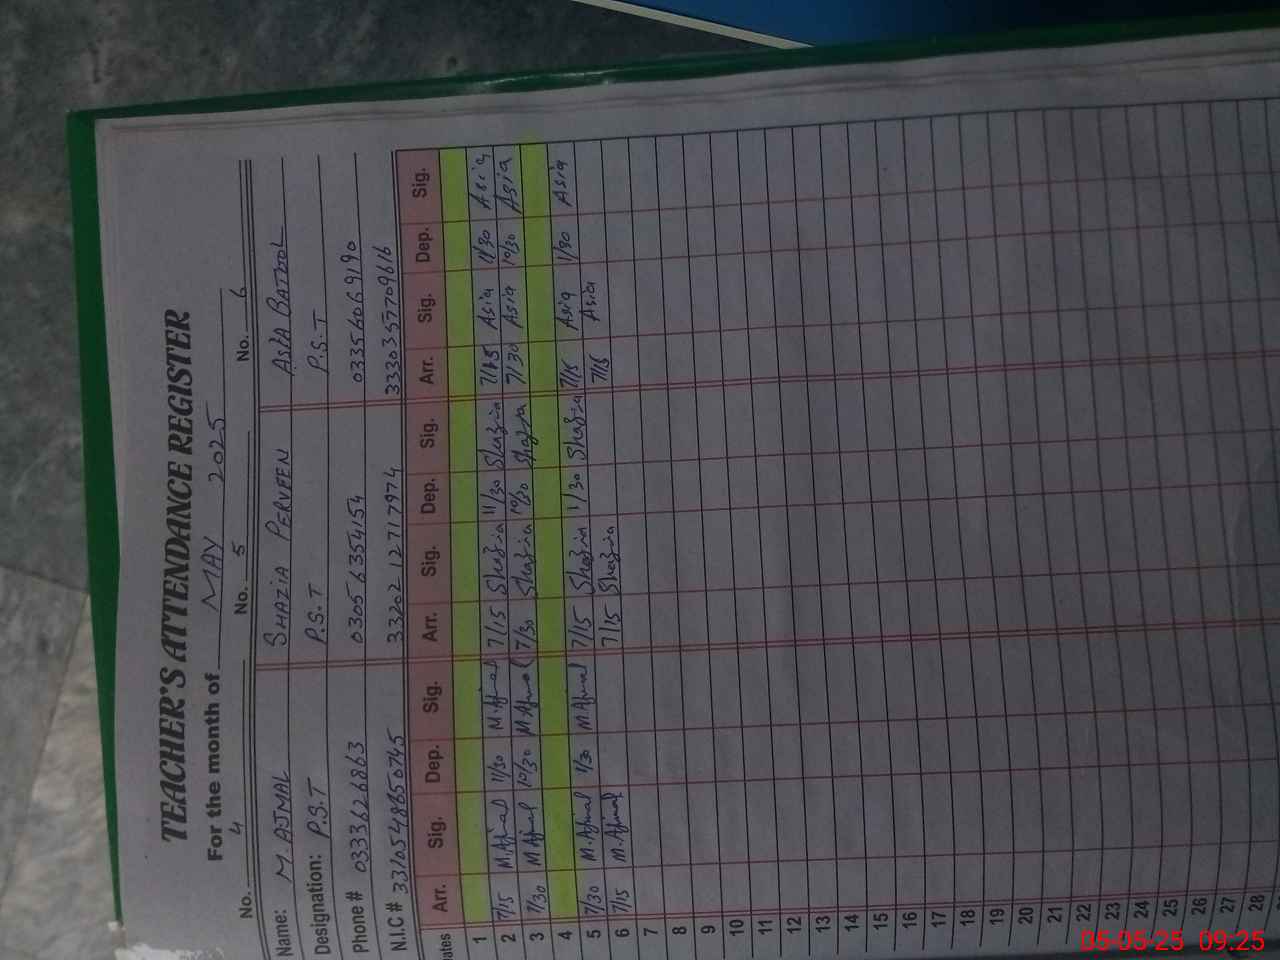 TEACHER'S ATTENDANCE REGISTER
For the month of MAY 2025
No. 4 No. 5 No. 6
Name: M. AJMAL SHAZIA PERVEEN ASIA BATOOL
Designation: P.S.T P.S.T P.S.T
Phone # 0333626863 03056354154 03356069190
N.I.C # 3310548850745 3320212717974 3330357709616
Dates Arr. Sig. Dep. Sig. Arr. Sig. Dep. Sig. Arr. Sig. Dep. Sig.
1
2 7/15 M.Ajmal 11/30 M.Ajmal 7/15 Shazia 11/30 Shazia 7/15 Asia 11/30 Asia
3 7/30 M Ajmal 10/30 M Ajmal 7/30 Shazia 10/30 Shazia 7/30 Asia 10/30 Asia
4
5 7/30 M.Ajmal 1/30 M Ajmal 7/15 Shazia 1/30 Shazia 7/15 Asia 1/30 Asia
6 7/15 M.Ajmal 7/15 Shazia 7/15 Asia
7
8
9
10
11
12
13
14
15
16
17
18
19
20
21
22
23
24
25
26
27
28
05-05-25 09:25